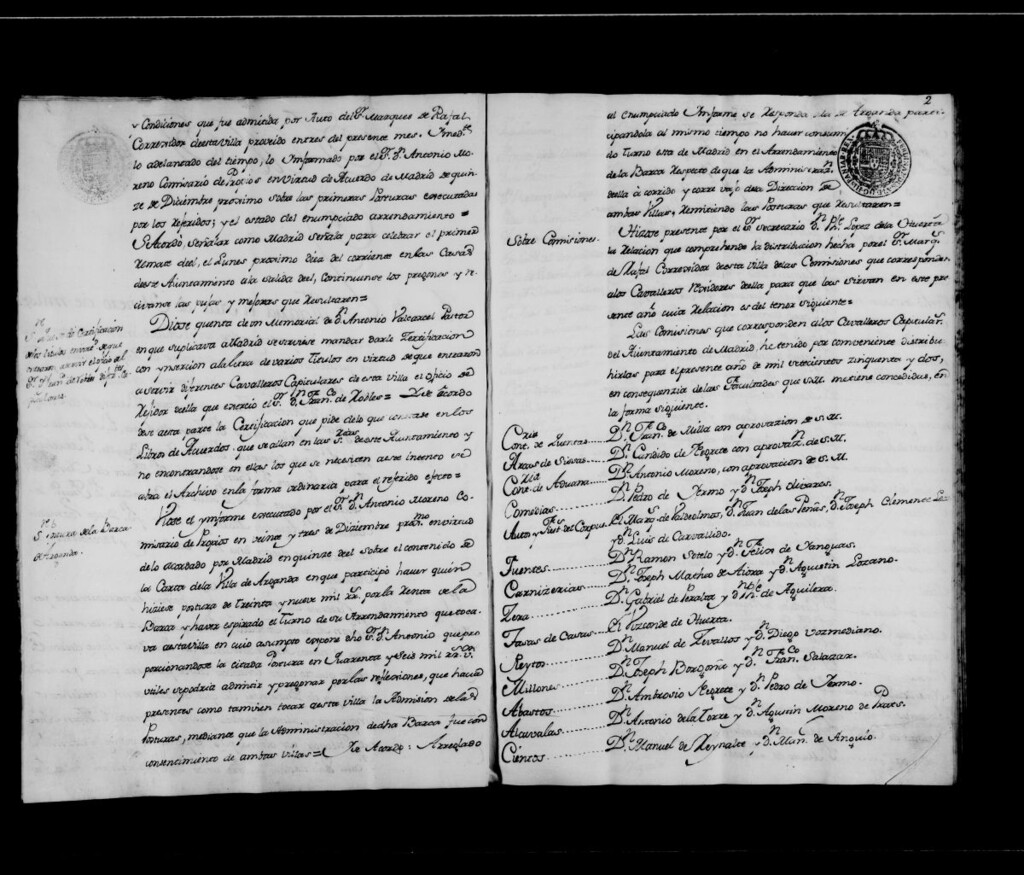 y Condiciones que fue admitida por Auto del Sr. Marques de Rafal
Corregidor desta villa proveido entres del presente mes.
lo adelantado del tiempo, lo Ynformado por el Sr. Dn. Antonio Mo-
reno Comisario de Propios en virtud de Acuerdo de Madrid de quin-
ze de Diziembre proximo sobre las primeras Posturas executadas
por los referidos; y el estado del enumpciado arrendamiento =
Se Acordó, señalar como Madrid señala para celebrar el primer
remate del, el Lunes proximo dia del corriente en las Casas
deste Ayuntamiento a la salida del, Continuense los pregones y re-
civanse las pujas, y mejoras que resultaren =
Diose quenta de un Memorial de Dn. Antonio Valcarcel Pastor
en que suplicava a Madrid se sirviese mandar darle Certificacion
con ynsercion a la letra de varios titulos en virtud de que entraron
a servir diferentes Cavalleros Capitulares de esta villa el oficio de
Rejidor della que exercio el Sr. Dn. Franco. de Robles = Se Acordo
de a esta parte la Certificacion que pide de lo que constare en los
Libros de Acuerdos, que se allan en las Srias. de este Ayuntamiento y
no encontrandose en ellas los que se necesiten a este intento se
abra el Archivo en la forma ordinaria para el referido efecto =
Viose el ynforme executado por el Sr. Dn. Antonio Moreno Co-
misario de Propios en veinte y tres de Diziembre proxmo. en virtud
de lo acordado por Madrid en quinze del sobre el contenido de
la Carta de la Villa de Arganda en que participó haver quien
hiziese postura de treinta y nueve mil rs. por la renta de la
Barca y haver espirado el turno de su Arrendamiento que toca-
va a esta villa en cuio asumpto expone dho Sr. Dn. Antonio que pro-
porcionandose la citada Postura en quarenta y seis mil rs. vn.
utiles se podria admitir y pregonar por las reflexiones, que hacia
presentes como tamvien tocar a esta villa la Admision de las
Posturas, mediante que la Administracion de dha Barca fue con
consentimiento de ambas villas = Se Acordo: Arreglado
Certificacion
Sre. la Barca
Arganda.
2
al enumpciado Ynforme se responda a la de Arganda partici-
pandola al mismo tiempo no haver consumido
turno esta de Madrid en el Arrendamiento
de la Barca respecto de que la Administrazn.
della à corrido y corre vajo de la Direccion de
ambas Villas, remitiendo las Posturas que resultaren =
Sobre Comisiones.
Hizose presente por el Sr. Secretario Dn. Phe. Lopez de la Huerta
la Relacion que comprehende la distribucion hecha por el Sr. Marqs.
de Rafal Corregidor de esta Villa de las Comisiones que corresponden
a los Cavalleros Rexidores della para que las sirvan en este pre-
sente año cuia Relacion es del tenor siguiente =
Las Comisiones que corresponden a los Cavalleros Capitulars.
del Ayuntamiento de Madrid, he tenido por conveniente distribu-
hirlas para el presente año de mil setecientos zinquenta y dos,
en consequenzia de las Facultades que S.M. me tiene concedidas, en
la forma siguiente.
Contria. de Quentas........ Dn. Franco. de Milla con aprovazion de S.M.
Arcas de Sisas............ Dn. Candido de Negrete con aprovazn. de S.M.
Contria. de Aduana........ Dn. Antonio Moreno, con aprovacion de S.M.
Comedias................ Dn. Pedro de Yermo y Dn. Joseph Olivares.
Autos y Fiestas del Corpus. El Marqs. de Valdeolmos, Dn. Juan de las Peñas, Dn. Joseph Climente
y Dn. Luis de Carvallido.
Fuentes................. Dn. Ramon Sotelo y Dn. Felix de Yanguas.
Carnizerias.............. Dn. Joseph Matheo de Aiora y Dn. Agustin Lozano.
Zera.................... Dn. Gabriel de Peralta y Dn. Phe. de Aguilera.
Tasas de Causas......... El Vizconde de Huerta.
Reptos................. Dn. Manuel de Zevallos y Dn. Diego Vozmediano.
Millones................ Dn. Joseph Bordoñe y Dn. Franco. Salazar.
Abastos................. Dn. Ambrosio Negrete y Dn. Pedro de Yermo.
Alcavalas............... Dn. Antonio de la Torre y Dn. Agustin Moreno de Prado.
Cientos................. Dn. Manuel de Reynalte y Dn. Juan de Angulo.